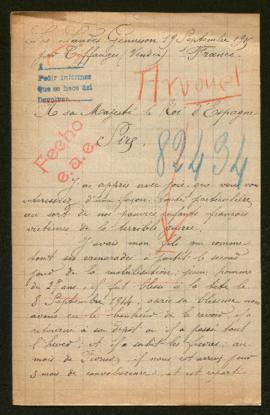 19 Septembre 1915
par Tiffauges (Vendée) France
A
Pedir informes
que se hace así
Devolver
Arnouel
A sa Majesté le Roi d'Espagne
Sire
Fecho
e.a.e.
82434
J'ai appris avec joie, que vous vous
intéressiez d'une façon toute particulière
au sort de nos pauvres enfants français
victimes de la terrible guerre.
J'avais mon fils qui comme
tous ses camarades a partit le second
jour de la mobilisation; jeune homme
de 2 ans, il fut blessé à la tête le
8 Septembre 1914, après sa blessure nous
avons eu le bonheur de le revoir, il a
retourné à son dépôt où il a passé tout
l'hiver, et il a subit les fièvres, au
mois de Février, il nous est arrivé pour
3 mois de convalescence, et est reparti